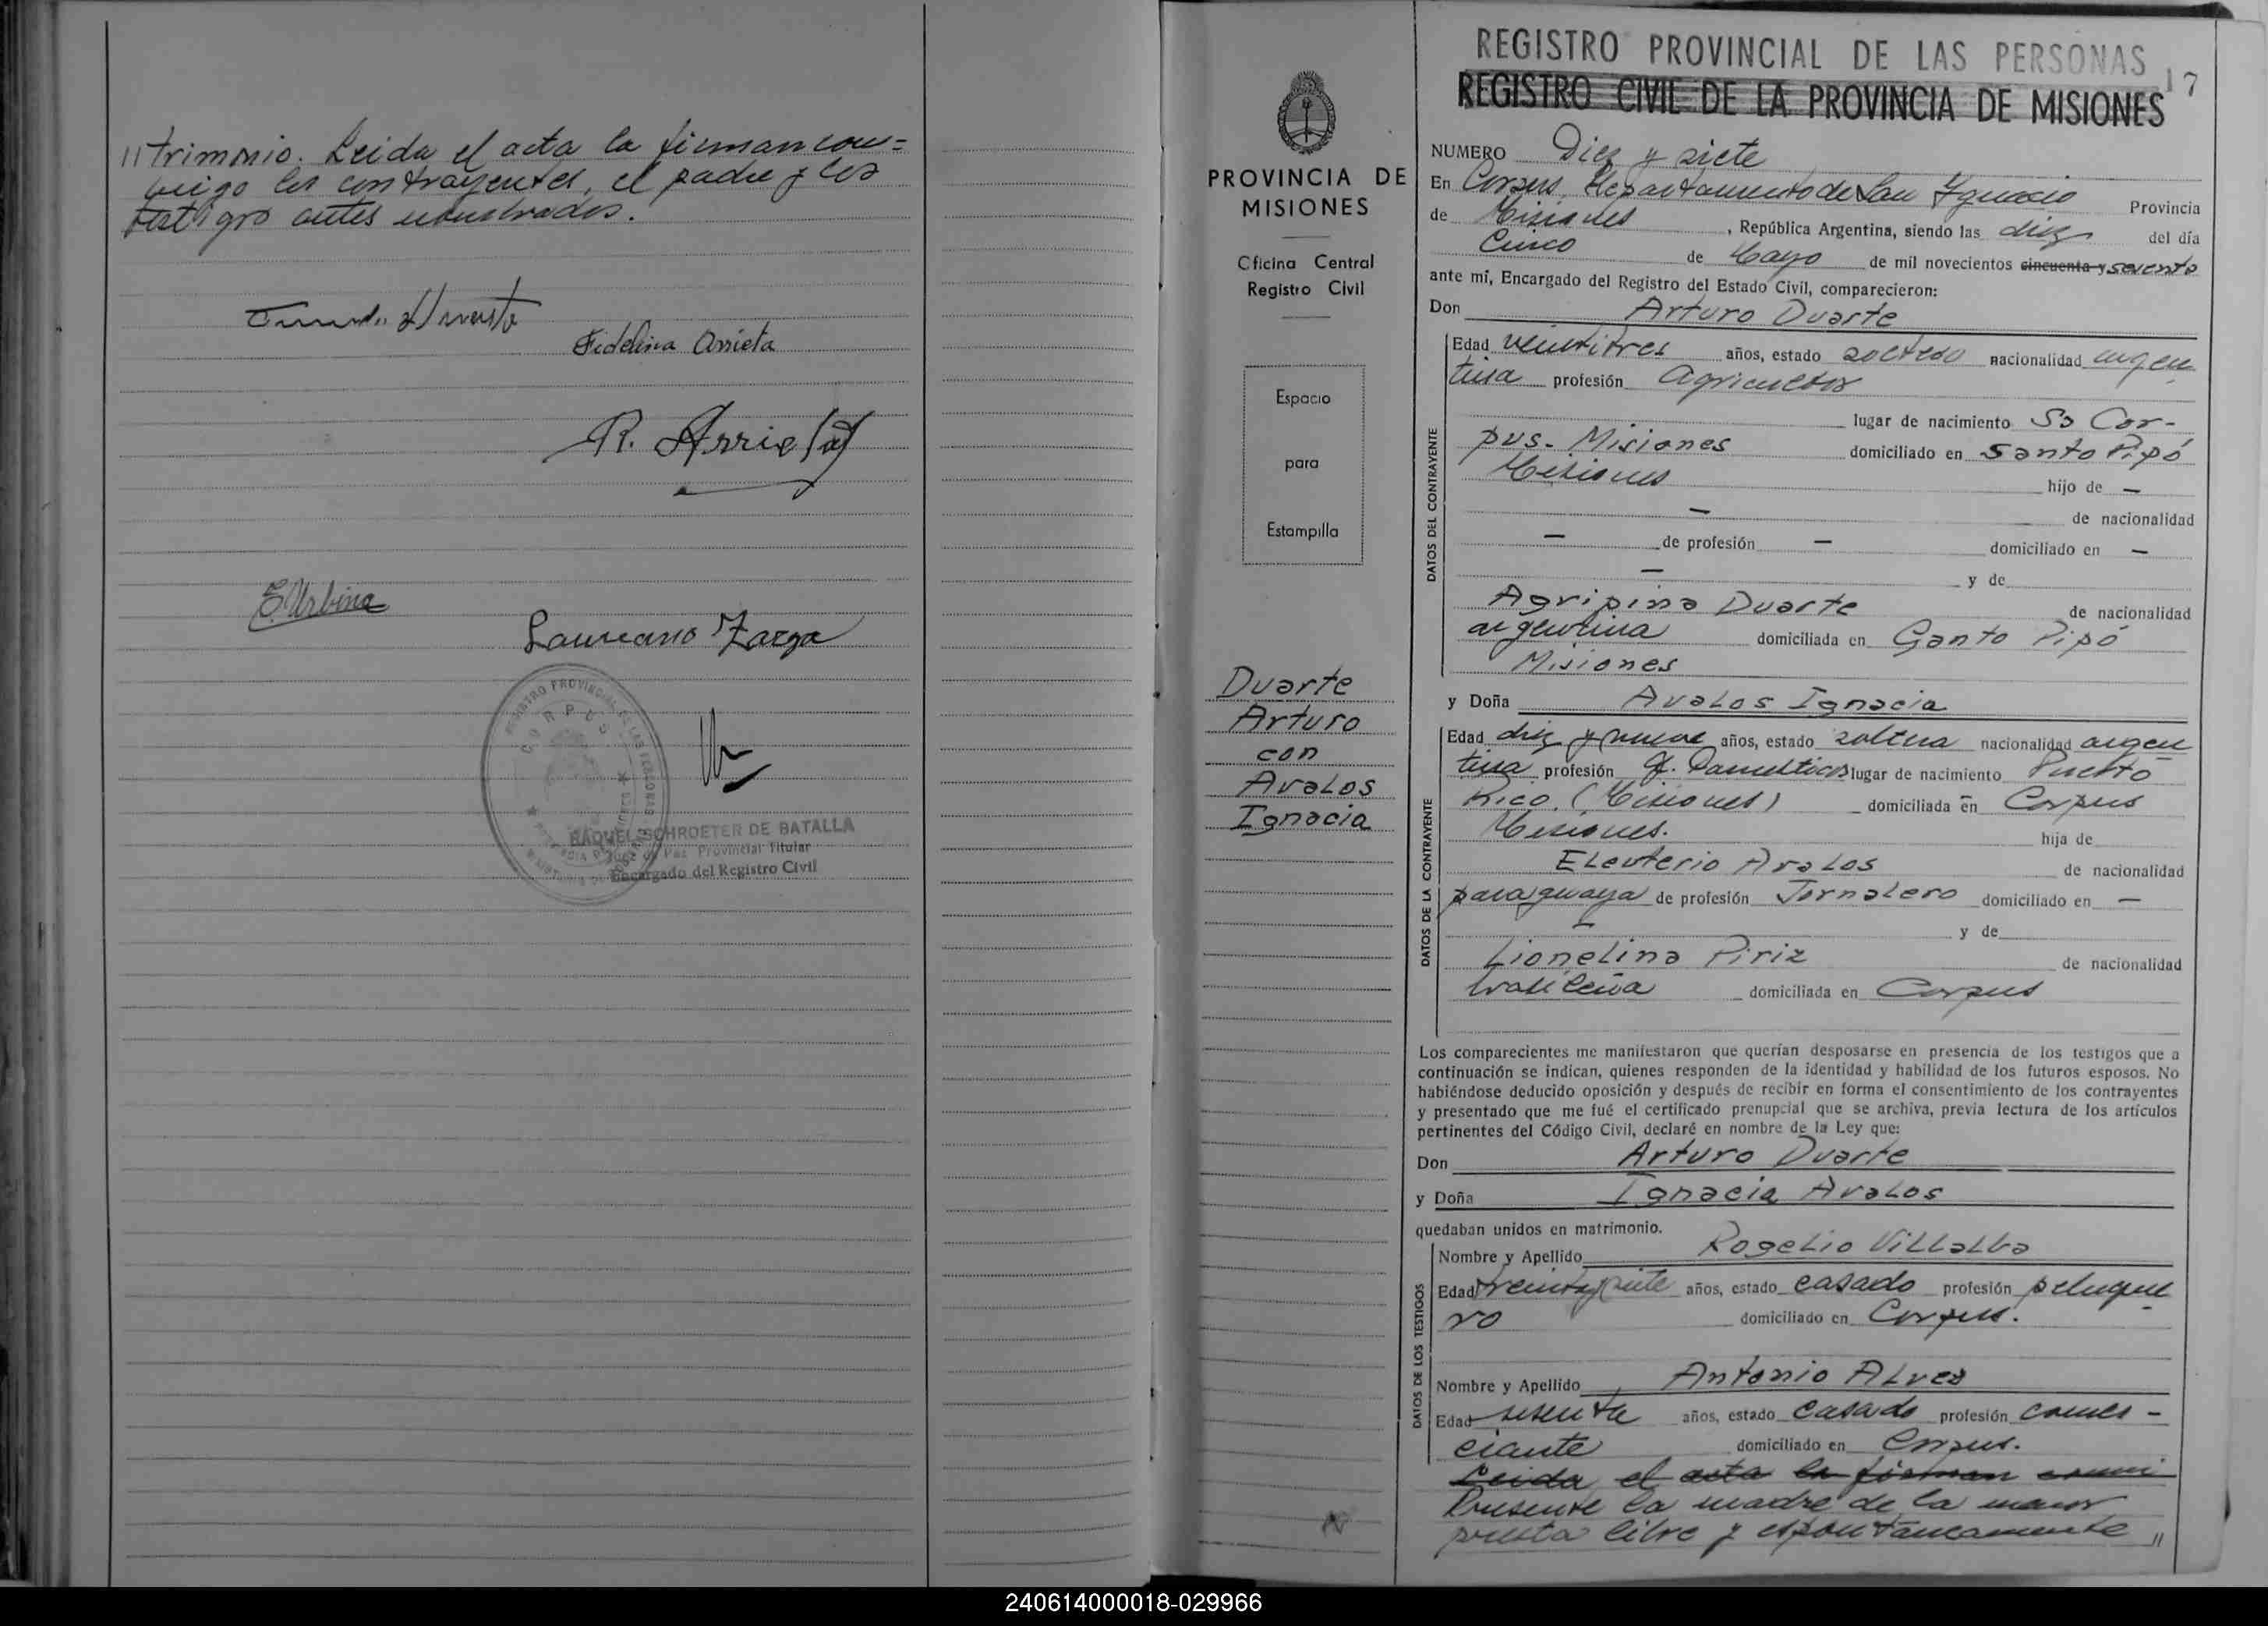 //trimonio. Leida el acta la firman con=
migo los contrayentes, el padre y los
testigos antes nombrados.
Fidelina Arrieta
R. Arrieta
E. Urbina
Laureano Zarza
REGISTRO PROVINCIAL DE LAS PERSONAS
CORPUS
RAQUEL SCHROETER DE BATALLA
Juez de Paz Provincial Titular
Encargado del Registro Civil
PROVINCIA DE
MISIONES
Oficina Central
Registro Civil
Espacio
para
Estampilla
Duarte
Arturo
con
Avalos
Ignacia
REGISTRO PROVINCIAL DE LAS PERSONAS
17
REGISTRO CIVIL DE LA PROVINCIA DE MISIONES
NUMERO Diez y siete
En Corpus, Departamento de San Ignacio Provincia
de Misiones, República Argentina, siendo las diez del día
Cinco de Mayo de mil novecientos cincuenta y setenta
ante mí, Encargado del Registro del Estado Civil, comparecieron:
Don Arturo Duarte
DATOS DEL CONTRAYENTE
Edad veintitres años, estado soltero nacionalidad argen
tina profesión Agricultor
lugar de nacimiento So Cor-
pus- Misiones domiciliado en Santo Pipó
Misiones hijo de —
— de nacionalidad
— de profesión — domiciliado en —
— y de
Agripina Duarte de nacionalidad
argentina domiciliada en Santo Pipó
Misiones
y Doña Avalos Ignacia
DATOS DE LA CONTRAYENTE
Edad diez y nueve años, estado soltera nacionalidad argen
tina profesión Q. Domesticos lugar de nacimiento Puerto
Rico. (Misiones) domiciliada en Corpus
Misiones. hija de
Eleuterio Avalos de nacionalidad
paraguaya de profesión Jornalero domiciliado en —
— y de
Lionelina Piriz de nacionalidad
brasileña domiciliada en Corpus
Los comparecientes me manifestaron que querían desposarse en presencia de los testigos que a
continuación se indican, quienes responden de la identidad y habilidad de los futuros esposos. No
habiéndose deducido oposición y después de recibir en forma el consentimiento de los contrayentes
y presentado que me fué el certificado prenupcial que se archiva, previa lectura de los artículos
pertinentes del Código Civil, declaré en nombre de la Ley que:
Don Arturo Duarte
y Doña Ignacia Avalos
quedaban unidos en matrimonio.
DATOS DE LOS TESTIGOS
Nombre y Apellido Rogelio Villalba
Edad treinta y siete años, estado casado profesión peluque
ro domiciliado en Corpus.
Nombre y Apellido Antonio Alvez
Edad sesenta años, estado Casado profesión comer-
ciante domiciliado en Corpus.
Leida el acta la firman conmi
Presente la madre de la menor
presta libre y espontaneamente //
240614000018-029966